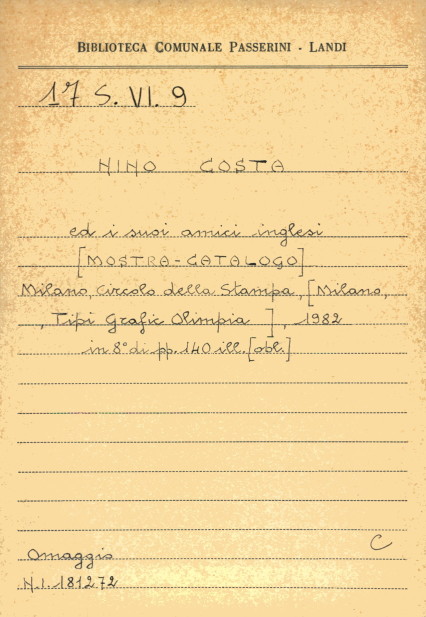 BIBLIOTECA COMUNALE PASSERINI - LANDI
17 S. VI. 9
NINO COSTA
ed i suoi amici inglesi
[MOSTRA-CATALOGO]
Milano, Circolo della Stampa, [Milano,
, Tipi Grafic Olimpia ], 1982
in 8° di pp. 140 ill. [obl.]
C
Omaggio
N.I. 181272